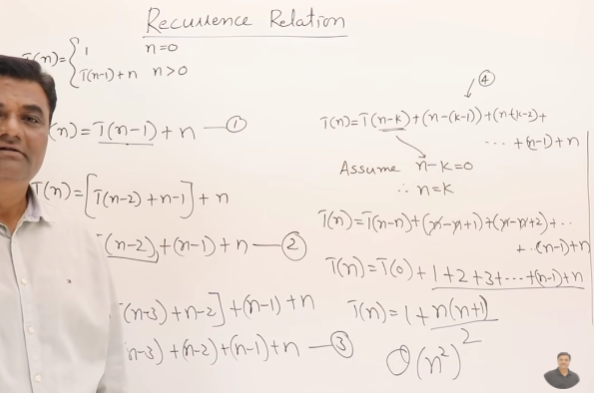 Recurrence Relation
T(n)={ 1 n=0
T(n-1)+n n>0
(n)=T(n-1)+n —①
T(n)=[T(n-2)+n-1]+n
(n-2)+(n-1)+n —②
(n-3)+n-2]+(n-1)+n
n-3)+(n-2)+(n-1)+n —③
④
T(n)=T(n-k)+(n-(k-1))+(n-(k-2)+
...+(n-1)+n
Assume n-k=0
∴ n=k
T(n)=T(n-n)+(n-n+1)+(n-n+2)+..
+..(n-1)+n
T(n)=T(0)+1+2+3+...+(n-1)+n
T(n)=1+n(n+1)
2
O(n²)